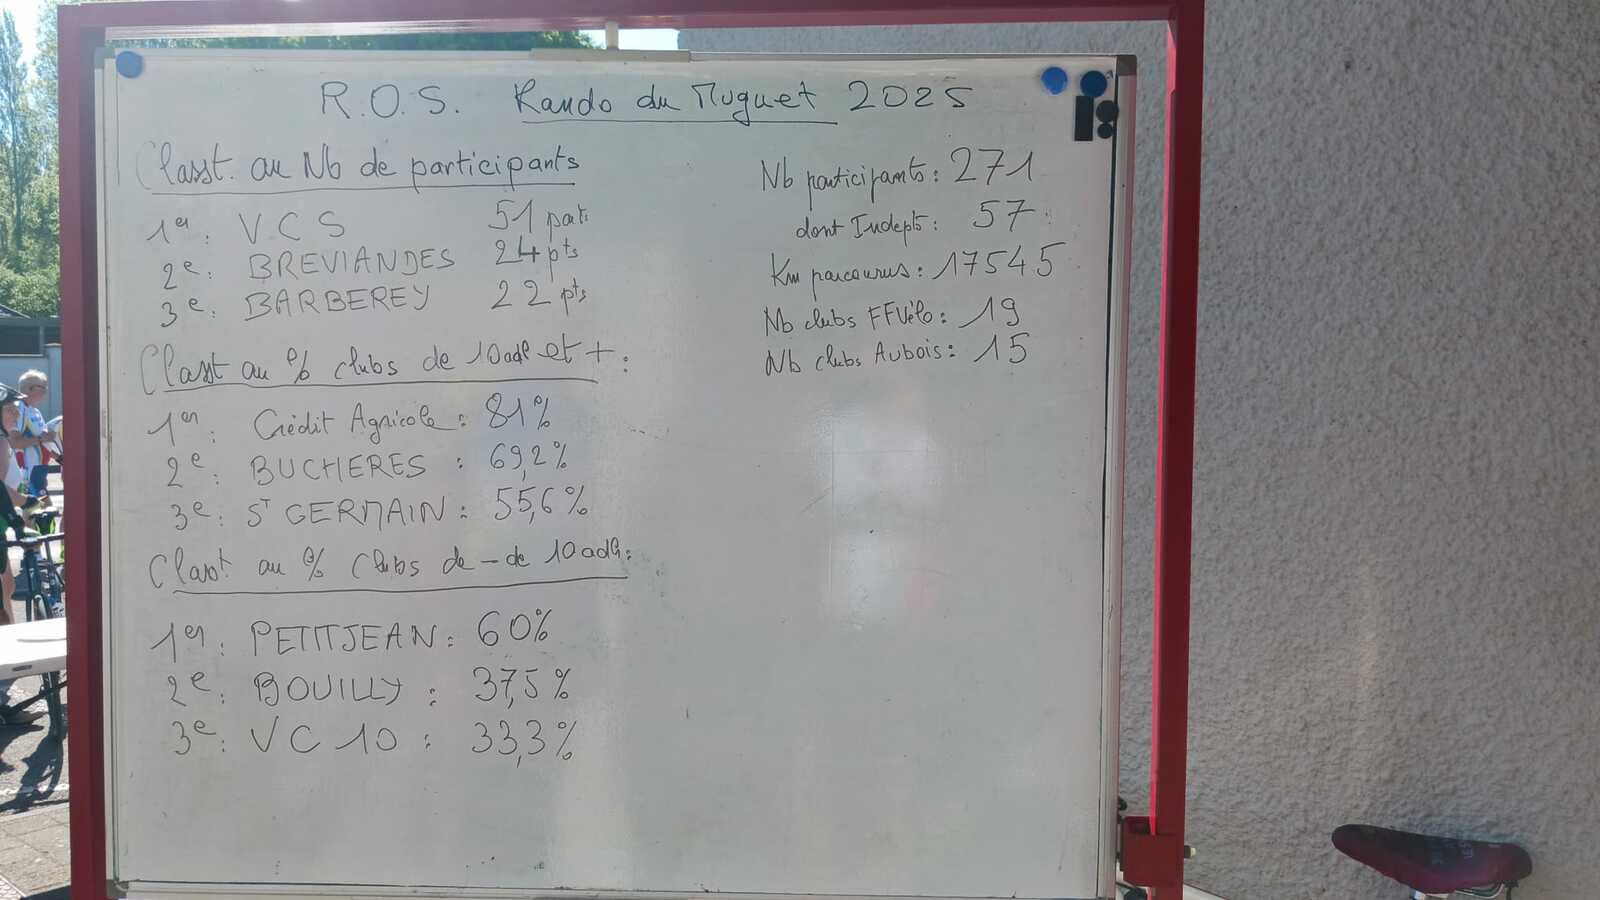 R.O.S. Rando du Muguet 2025
Classt. au Nb de participants
1er: VCS 51 parti
2e: BREVIANDES 24 pts
3e: BARBEREY 22 pts
Classt au % clubs de 10 adh et + :
1er: Crédit Agricole : 81%
2e: BUCHERES : 69,2%
3e: St GERMAIN : 55,6%
Classt. au % Clubs de - de 10 adh:
1er: PETITJEAN : 60%
2e: BOUILLY : 37,5%
3e: VC 10 : 33,3%
Nb participants : 271
dont Indepts : 57
Km parcourus : 17545
Nb clubs FFVélo : 19
Nb clubs Aubois : 15